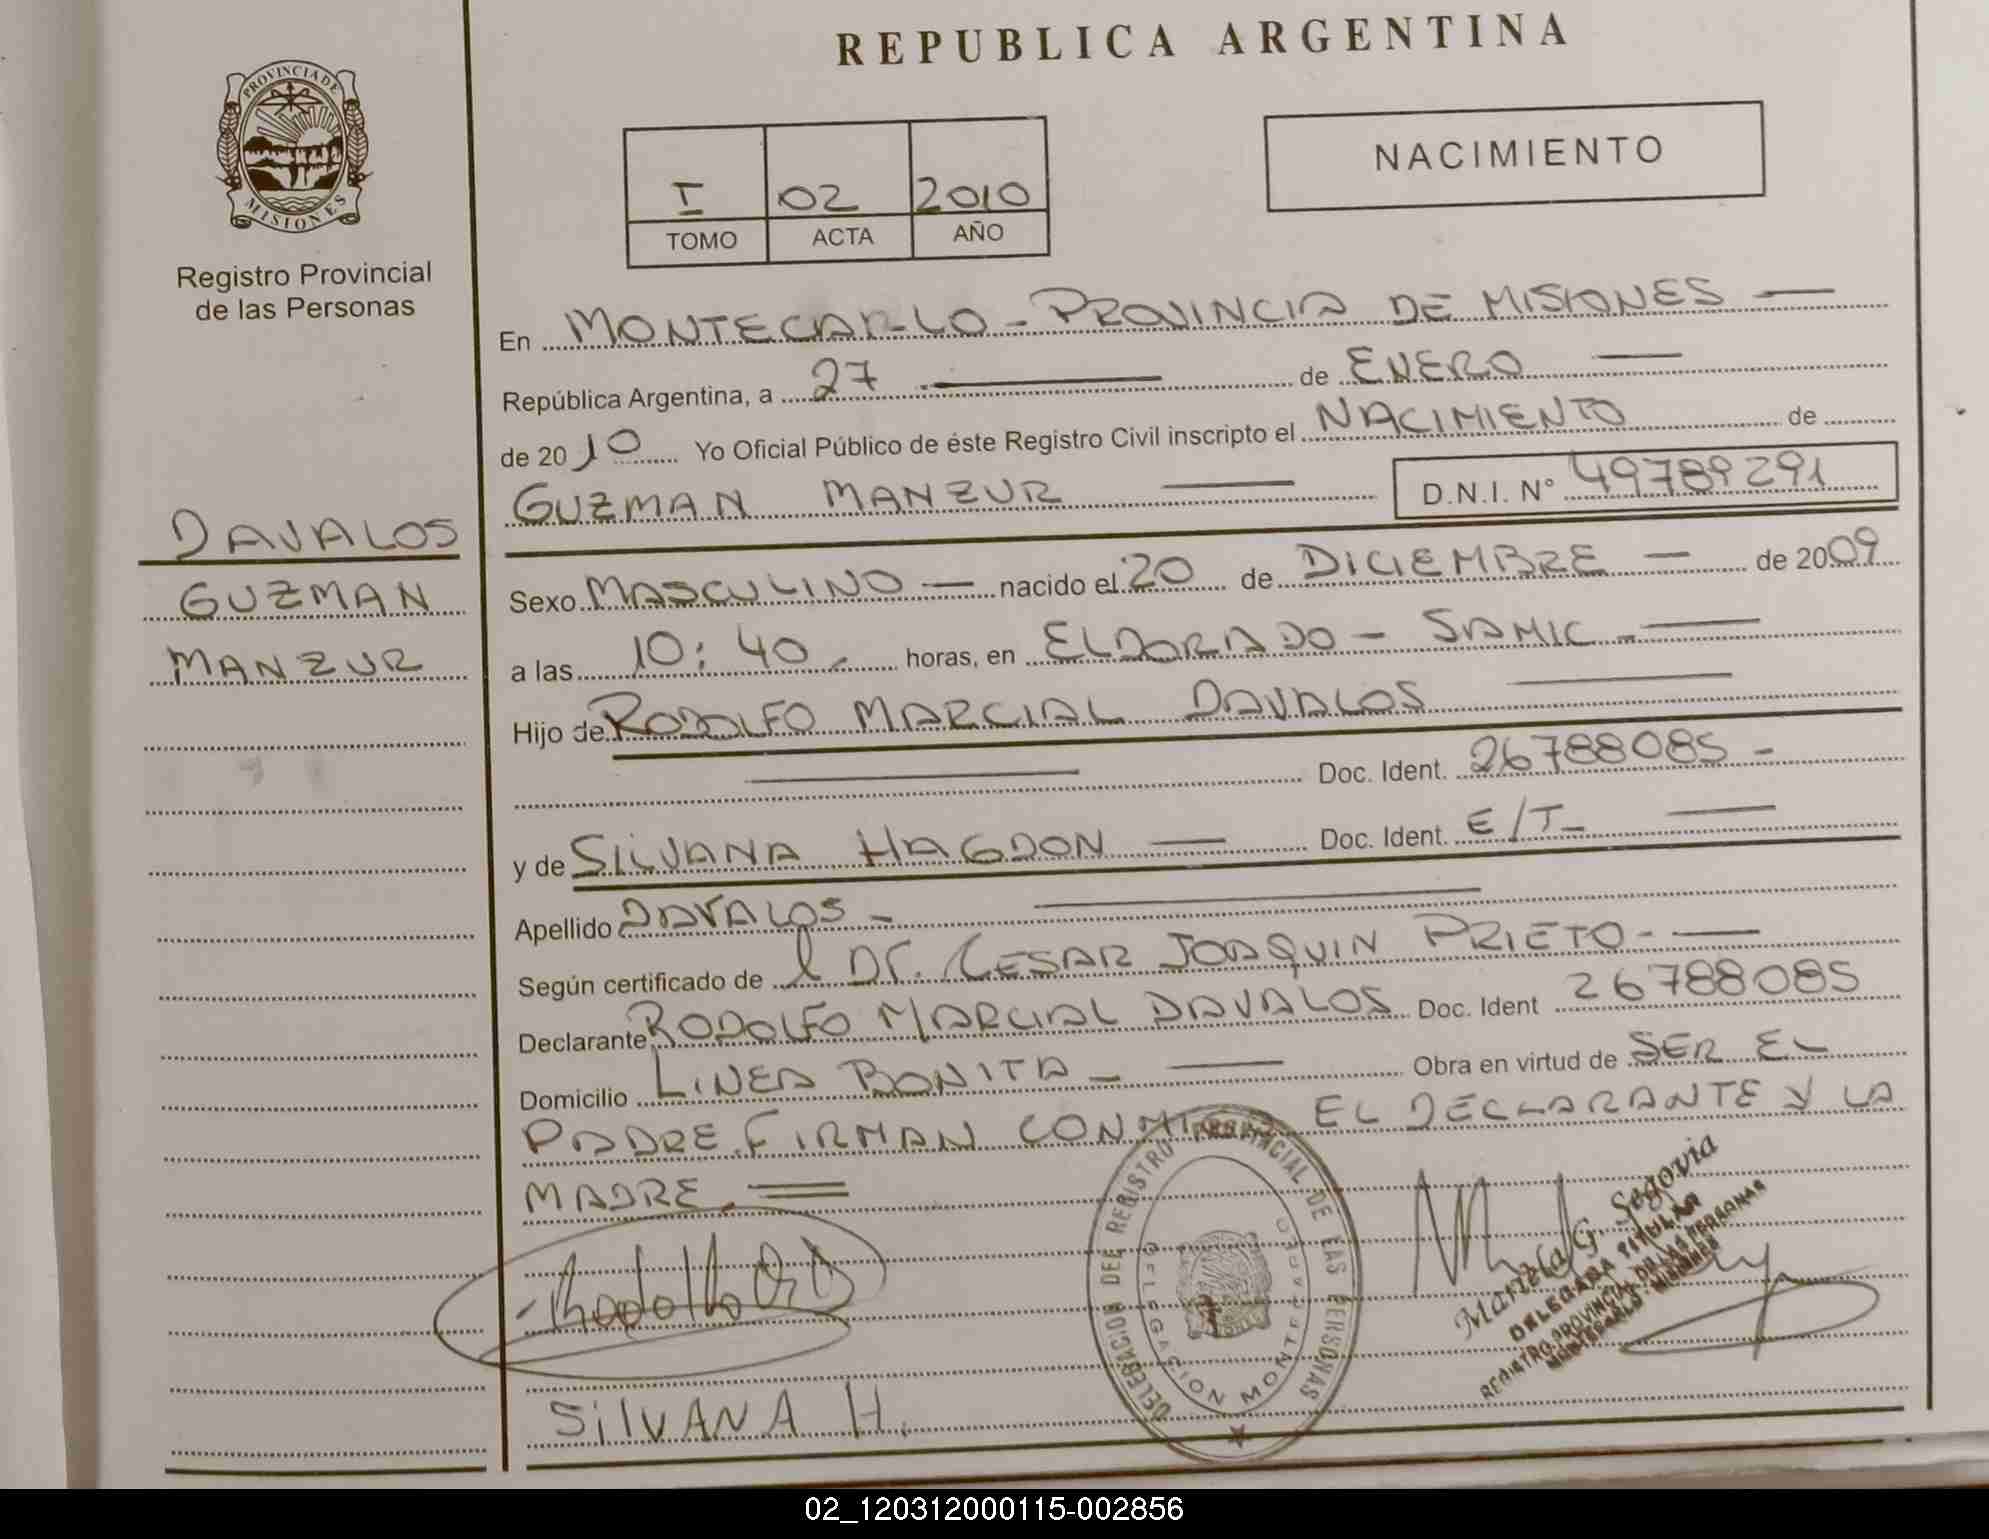 REPUBLICA ARGENTINA
PROVINCIA DE MISIONES
Registro Provincial
de las Personas
I 02 2010
TOMO ACTA AÑO
NACIMIENTO
DAVALOS
GUZMAN
MANZUR
En MONTECARLO - PROVINCIA DE MISIONES —
República Argentina, a 27 — de ENERO —
de 2010 Yo Oficial Público de éste Registro Civil inscripto el NACIMIENTO de
GUZMAN MANZUR — D.N.I. N° 49789291
Sexo MASCULINO — nacido el 20 de DICIEMBRE — de 2009
a las 10:40. horas, en ELDORADO - SAMIC - —
Hijo de RODOLFO MARCIAL DAVALOS —
— Doc. Ident. 26788085 -
y de SILVANA HAGDON — Doc. Ident. E/T- —
Apellido DAVALOS - —
Según certificado de l Dr. CESAR JOAQUIN PRIETO - —
Declarante RODOLFO MARCIAL DAVALOS Doc. Ident 26788085
Domicilio LINEA BONITA - — Obra en virtud de SER EL
PADRE. FIRMAN CONMIGO EL DECLARANTE Y LA
MADRE. =
DELEGACION DEL REGISTRO PROVINCIAL DE LAS PERSONAS
DELEGACION MONTECARLO
Mariela G. Segovia
DELEGADA TITULAR
REGISTRO PROVINCIAL DE LAS PERSONAS
MONTECARLO - MISIONES
SILVANA H.
02_120312000115-002856